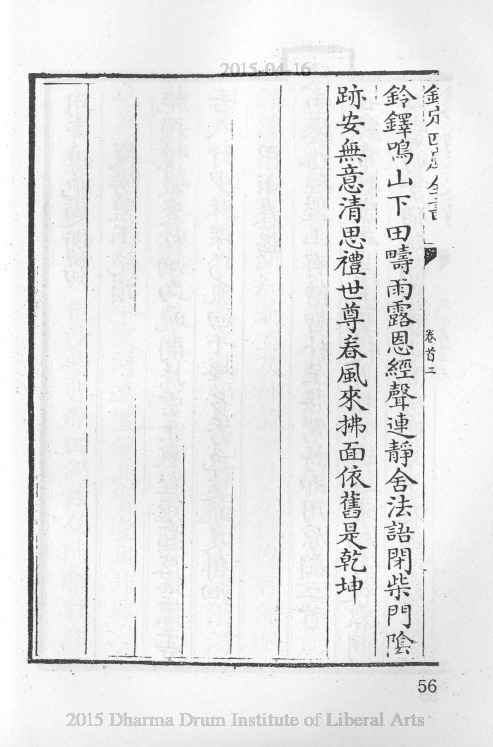 2015-04-16
欽定四庫全書
卷首二
鈴鐸鳴山下田疇雨露恩經聲連靜舍法語閉柴門陰
跡安無意清思禮世尊春風來拂面依舊是乾坤
56
2015 Dharma Drum Institute of Liberal Arts